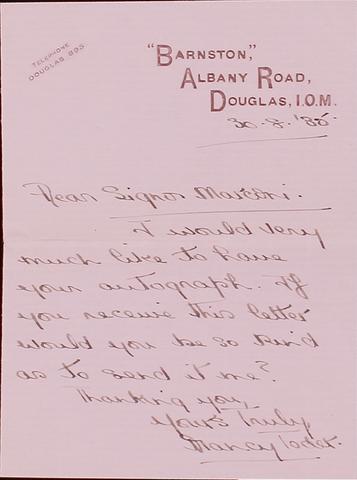 TELEPHONE
DOUGLAS 895
"BARNSTON,"
ALBANY ROAD,
DOUGLAS, I.O.M.
30-8-'35
Dear Signor Marconi.
I would very
much like to have
your autograph. If
you receive this letter
would you be so kind
as to send it me?
Thanking you,
yours Truly,
Nancy